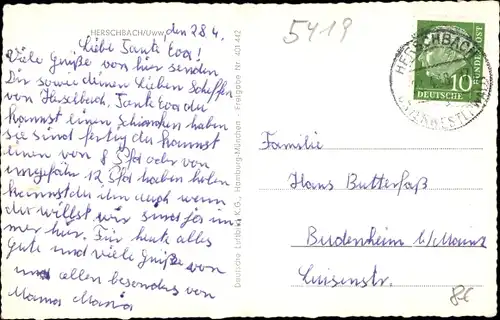 HERSCHBACH/Uww., den 28.4.
5419
Liebe Tante Eva!
Viele Grüße von hier senden
Dir sowie deinen Lieben
von Tante Eva du
kannst einen Schinken haben
sie sind fertig du kannst
einen von 8 Pfd oder von
ungefähr 12 Pfd haben holen
kannst du ihn auch wenn
du willst wir sind ja im
mer hier. Für heute alles
gute und viele Grüße von
und allen besonders von
Mama Maria
Deutsche Luftbild K.G., Hamburg-München - Freigabe Nr. 401 442
HERSCHBACH
DEUTSCHE BUNDESPOST
10
Familie
Hans Butterfaß
Budenheim b/Mainz
Luisenstr.
8€